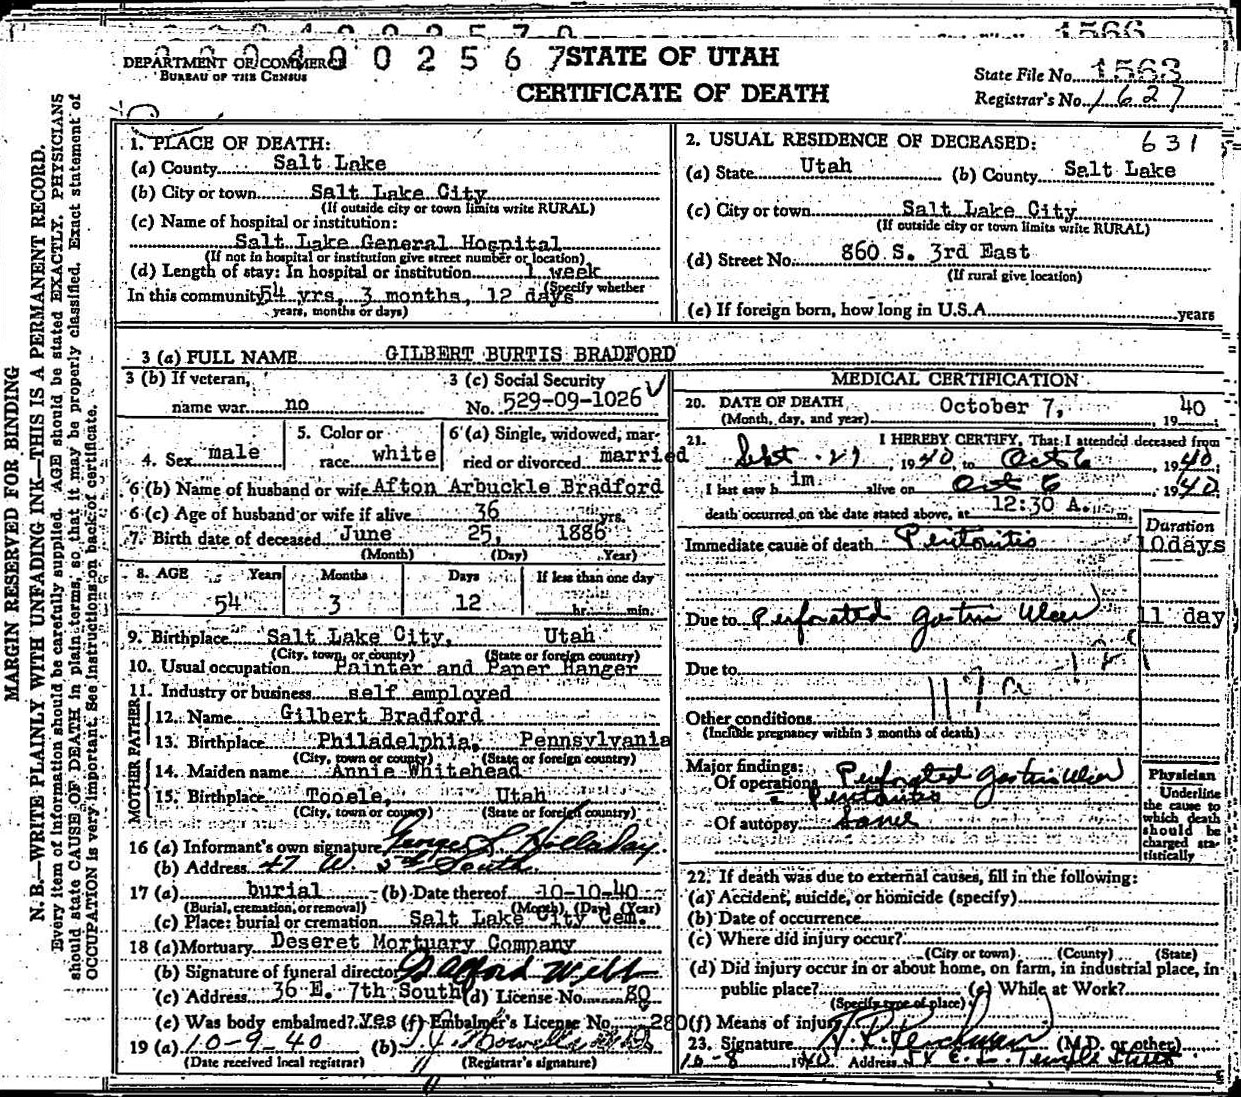 1566
DEPARTMENT OF COMMERCE
BUREAU OF THE CENSUS
0 0 2 5 6 7
STATE OF UTAH
CERTIFICATE OF DEATH
State File No. 1563
Registrar's No. 1627
MARGIN RESERVED FOR BINDING
N. B.—WRITE PLAINLY WITH UNFADING INK—THIS IS A PERMANENT RECORD.
Every item of information should be carefully supplied. AGE should be stated EXACTLY. PHYSICIANS
should state CAUSE OF DEATH in plain terms, so that it may be properly classified. Exact statement of
OCCUPATION is very important. See instructions on back of certificate.
1. PLACE OF DEATH:
(a) County Salt Lake
(b) City or town Salt Lake City
(If outside city or town limits write RURAL)
(c) Name of hospital or institution:
Salt Lake General Hospital
(If not in hospital or institution give street number or location)
(d) Length of stay: In hospital or institution 1 week
(Specify whether
In this community 54 yrs, 3 months, 12 days
years, months or days)
2. USUAL RESIDENCE OF DECEASED: 631
(a) State Utah (b) County Salt Lake
(c) City or town Salt Lake City
(If outside city or town limits write RURAL)
(d) Street No. 860 S. 3rd East
(If rural give location)
(e) If foreign born, how long in U.S.A. years
3 (a) FULL NAME GILBERT BURTIS BRADFORD
3 (b) If veteran, name war no
3 (c) Social Security No. 529-09-1026
4. Sex male
5. Color or race white
6 (a) Single, widowed, married or divorced married
6 (b) Name of husband or wife Afton Arbuckle Bradford
6 (c) Age of husband or wife if alive 36 yrs.
7. Birth date of deceased June 25, 1886
(Month) (Day) (Year)
8. AGE Years Months Days If less than one day
54 3 12 hr. min.
9. Birthplace Salt Lake City, Utah
(City, town, or county) (State or foreign country)
10. Usual occupation Painter and Paper Hanger
11. Industry or business self employed
FATHER
12. Name Gilbert Bradford
13. Birthplace Philadelphia, Pennsylvania
(City, town or county) (State or foreign country)
MOTHER
14. Maiden name Annie Whitehead
15. Birthplace Tooele, Utah
(City, town or county) (State or foreign country)
16 (a) Informant's own signature George L Holladay
(b) Address 47 W. South
17 (a) burial (b) Date thereof 10-10-40
(Burial, cremation, or removal) (Month) (Day) (Year)
(c) Place: burial or cremation Salt Lake City Cem.
18 (a) Mortuary Deseret Mortuary Company
(b) Signature of funeral director
(c) Address 36 E. 7th South (d) License No. 80
(e) Was body embalmed? yes (f) Embalmer's License No. 280
19 (a) 10-9-40 (b)
(Date received local registrar) (Registrar's signature)
MEDICAL CERTIFICATION
20. DATE OF DEATH October 7, 19 40
(Month, day, and year)
21. I HEREBY CERTIFY, That I attended deceased from
Sept. 29, 1940 to Oct 6, 1940;
I last saw h im alive on Oct 6 1940
death occurred on the date stated above, at 12:30 A. m.
Duration
Immediate cause of death Peritonitis 10days
Due to Perforated gastric Ulcer 11 day
Due to
117a
Other conditions
(Include pregnancy within 3 months of death)
Major findings:
Of operations Perforated gastric ulcer
Peritonitis
Of autopsy Same
Physician
Underline the cause to which death should be charged statistically
22. If death was due to external causes, fill in the following:
(a) Accident, suicide, or homicide (specify)
(b) Date of occurrence
(c) Where did injury occur?
(City or town) (County) (State)
(d) Did injury occur in or about home, on farm, in industrial place, in
public place? (e) While at Work?
(Specify type of place)
(f) Means of injury
23. Signature (M.D. or other)
10-8 1940 Address